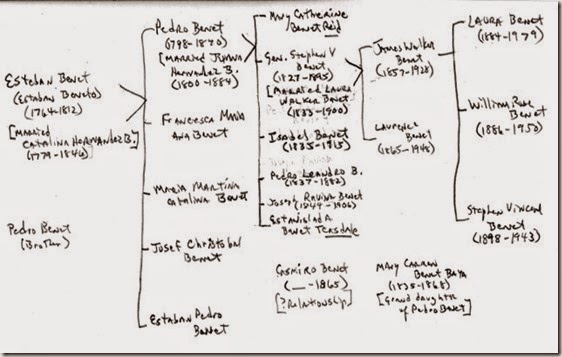 Esteban Benet
(Estaban Beneto)
(1764-1812)
[MARRIED
CATALINA HORNANDEZ B.]
(1779-1846)
Pedro Benet
(Brother)
Pedro Benet
(1798-1870)
[MARRIED Juana
Hernandez B.
(1800-1884)
Francesca Maria
Ana Benet
Maria Martina
Catalina Benet
Josef Christobal
Benet
Estaban Pedro
Benet
Mary Catherine
Benet Reid
Gen. Stephen V
Benet
(1827-1895)
[Married Laura
Walker Benet]
(1835-1900)
Isabel Benet
(1835-1915)
Pedro Leandro B.
(1837-1882)
Joseph Ravina Benet
(1844-1906)
Estanislada
Benet Teasdale
Casmiro Benet
(__-1865)
[?Relationship]
James Walker
Benet
(1857-1928)
Laurence
Benet
(1865-1948)
Mary Carmen
Benet Baya
(1835-1868)
[Grand daughter
of Pedro Benet]
LAURA Benet
(1884-1979)
William Rose
Benet
(1886-1950)
Stephen Vincent
Benet
(1898-1943)